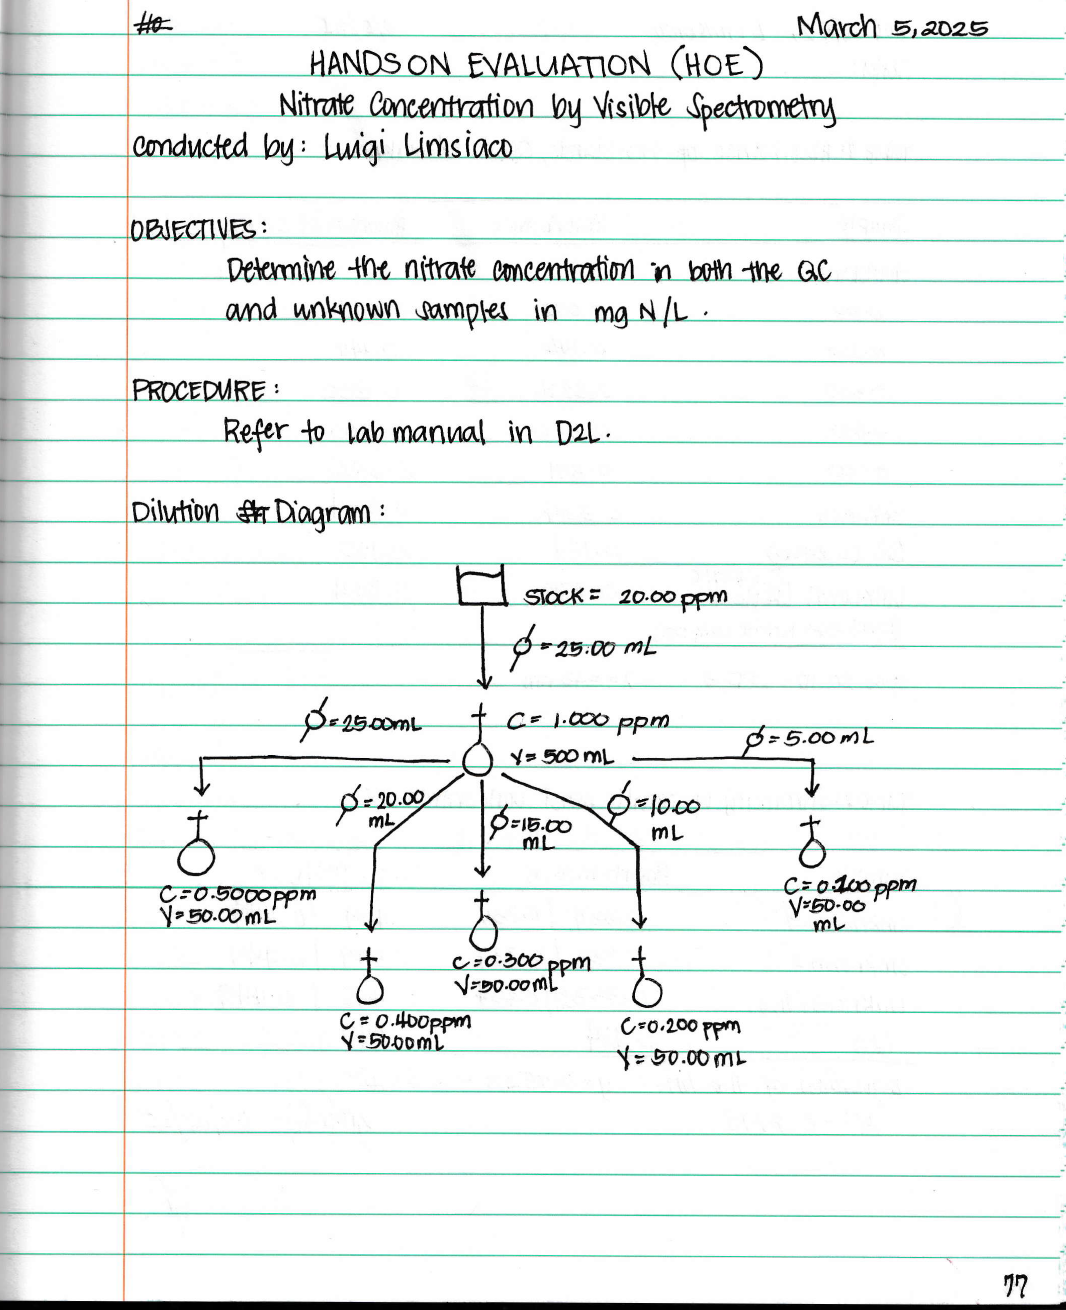 March 5, 2025
HANDS ON EVALUATION (HOE)
Nitrate Concentration by Visible Spectrometry
conducted by: Luigi Limsiaco
OBJECTIVES:
Determine the nitrate concentration in both the QC
and unknown samples in mg N/L.
PROCEDURE:
Refer to lab manual in D2L.
Dilution Diagram:
STOCK = 20.00 ppm
∅ = 25.00 mL
∅ = 25.00 mL
C = 1.000 ppm
V = 500 mL
∅ = 5.00 mL
∅ = 20.00
mL
∅ = 15.00
mL
∅ = 10.00
mL
C = 0.5000 ppm
V = 50.00 mL
C = 0.100 ppm
V = 50.00
mL
C = 0.300 ppm
V = 50.00 mL
C = 0.400 ppm
V = 50.00 mL
C = 0.200 ppm
V = 50.00 mL
77